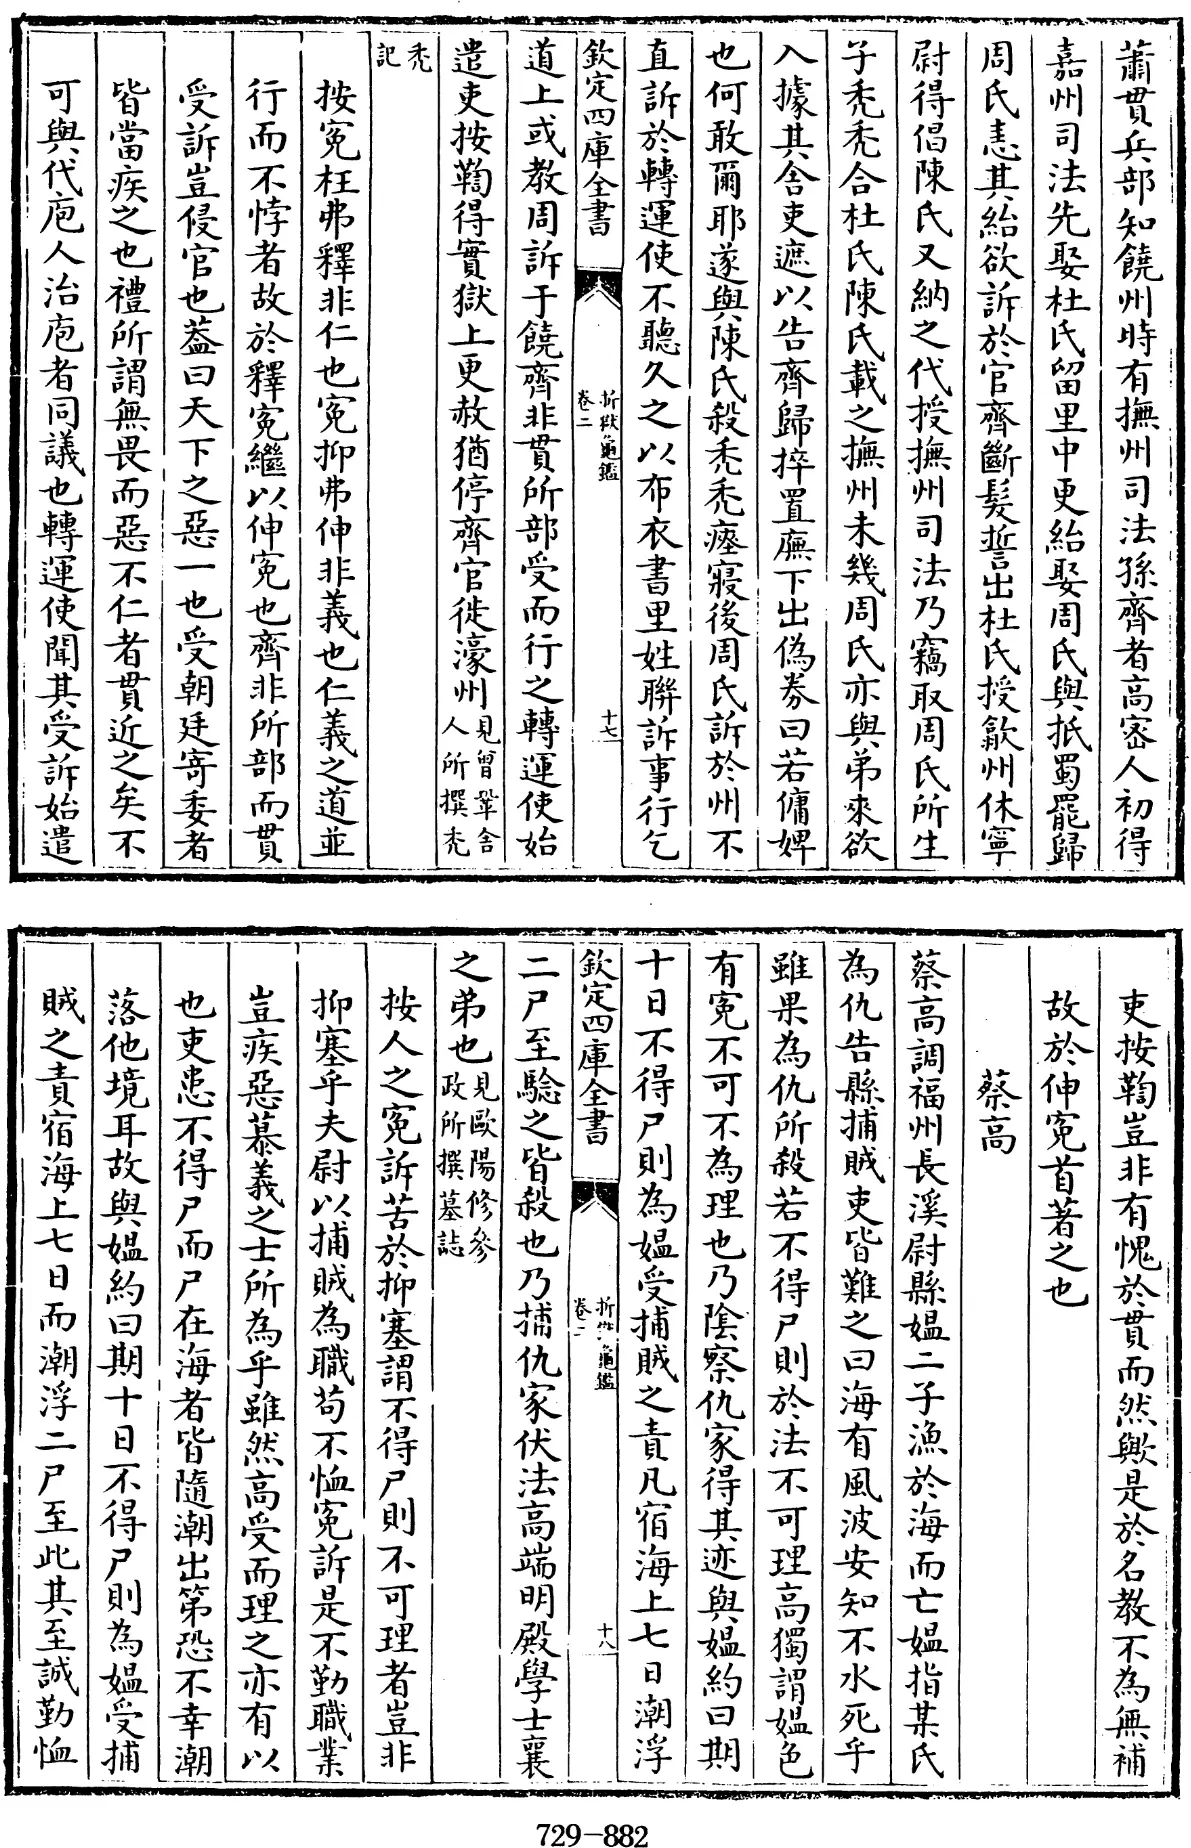 蕭貫兵部知饒州時有撫州司法孫齊者高密人初得
嘉州司法先娶杜氏留里中更紿娶周氏與抵蜀罷歸
周氏恚其紿欲訴於官齊斷髮誓出杜氏授歙州休寧
尉得倡陳氏又納之代授撫州司法乃竊取周氏所生
子禿禿合杜氏陳氏載之撫州未幾周氏亦與弟來欲
入據其舍吏遮以告齊歸捽置廡下出偽券曰若傭婢
也何敢爾耶遂與陳氏殺禿禿瘞寢後周氏訴於州不
直訴於轉運使不聽久之以布衣書里姓聯訴事行乞
欽定四庫全書
折獄龜鑑
卷二
十七
道上或教周訴于饒齊非貫所部受而行之轉運使始
遣吏按鞫得實獄上更赦猶停齊官徙濠州見曾鞏舍人所撰禿
禿記
按冤枉弗釋非仁也冤抑弗伸非義也仁義之道並
行而不悖者故於釋冤繼以伸冤也齊非所部而貫
受訴豈侵官也蓋曰天下之惡一也受朝廷寄委者
皆當疾之也禮所謂無畏而惡不仁者貫近之矣不
可與代庖人治庖者同議也轉運使聞其受訴始遣
吏按鞫豈非有愧於貫而然歟是於名教不為無補
故於伸冤首著之也
蔡高
蔡高調福州長溪尉縣媼二子漁於海而亡媼指某氏
為仇告縣捕賊吏皆難之曰海有風波安知不水死乎
雖果為仇所殺若不得尸則於法不可理高獨謂媼色
有冤不可不為理也乃陰察仇家得其迹與媼約曰期
十日不得尸則為媼受捕賊之責凡宿海上七日潮浮
欽定四庫全書
折獄龜鑑
卷二
十八
二尸至驗之皆殺也乃捕仇家伏法高端明殿學士襄
之弟也見歐陽修參政所撰墓誌
按人之冤訴苦於抑塞謂不得尸則不可理者豈非
抑塞乎夫尉以捕賊為職苟不恤冤訴是不勤職業
豈疾惡慕義之士所為乎雖然高受而理之亦有以
也吏患不得尸而尸在海者皆隨潮出第恐不幸潮
落他境耳故與媼約曰期十日不得尸則為媼受捕
賊之責宿海上七日而潮浮二尸至此其至誠勤恤
729-882